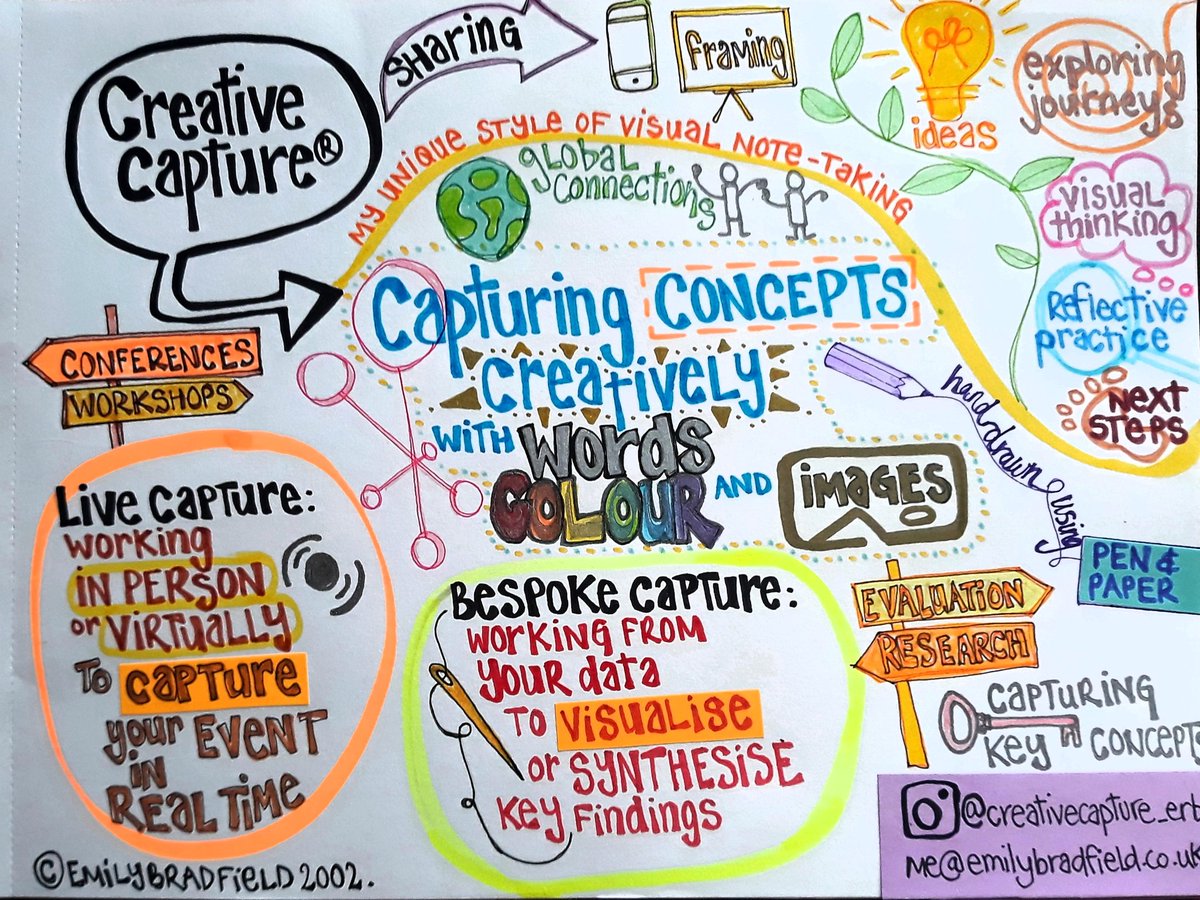 Creative
capture®
Sharing
framing
ideas
exploring
journeys
MY UNIQUE STYLE OF VISUAL NOTE-TAKING
GLOBAL
CONNECTIONS
visual
thinking
Reflective
practice
NEXT
STEPS
Capturing CONCEPTS
creatively
WITH WORDS
COLOUR AND IMAGES
hand drawn using
PEN &
PAPER
CONFERENCES
WORKSHOPS
LIVE CAPTURE:
working
IN PERSON
or VIRTUALLY
TO CAPTURE
your EVENT
in
REAL TIME
BESPOKE CAPTURE:
WORKING FROM
YOUR data
TO VISUALISE
or SYNTHESISE
KEY findings
EVALUATION
RESEARCH
CAPTURING
KEY CONCEPTS
@creativecapture_erb
me@emilybradfield.co.uk
© EMILY BRADFIELD 2002.